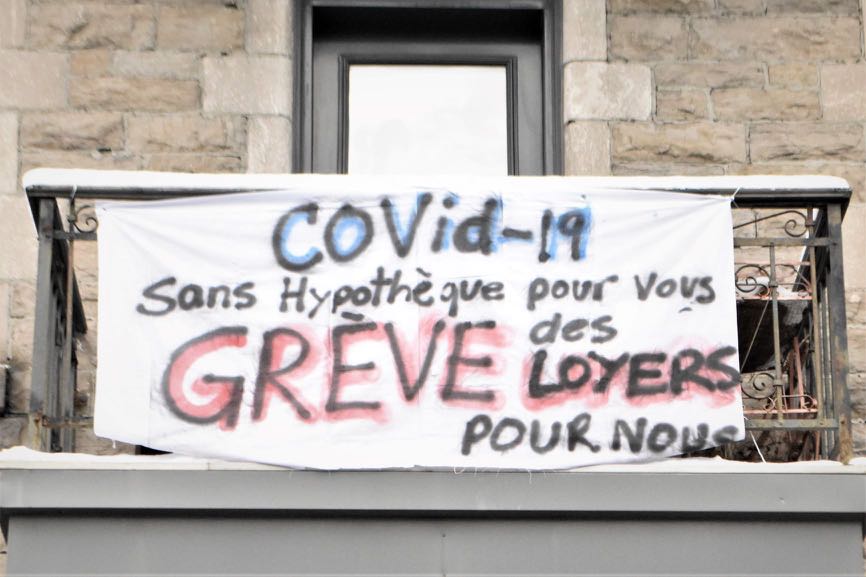 COVid-19
Sans Hypothèque pour vous
GRÈVE des LOYERS
POUR NOUS